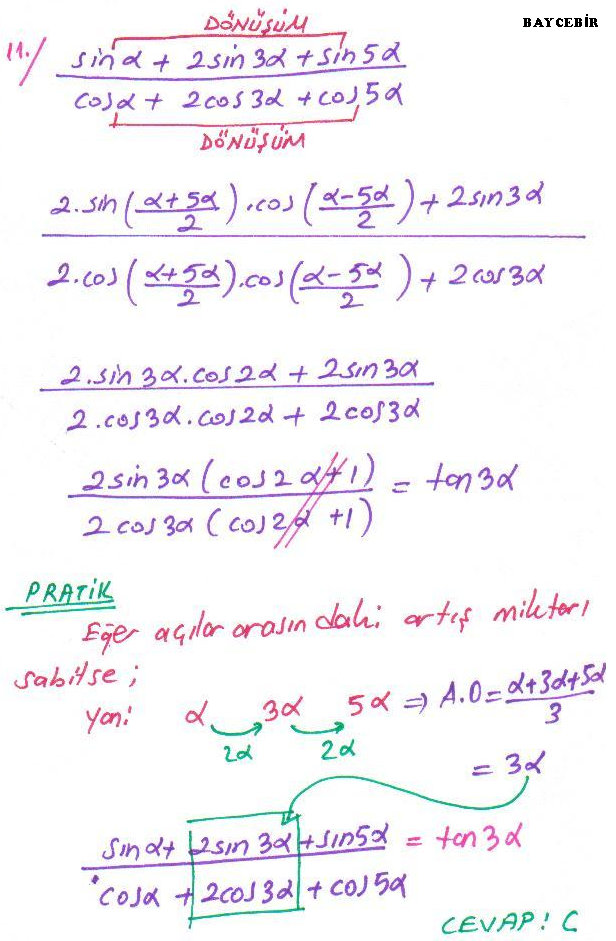 DÖNÜŞÜM
BAYCEBİR
11./ (sinα + 2sin3α + sin5α) / (cosα + 2cos3α + cos5α)
DÖNÜŞÜM
2.sin((α+5α)/2).cos((α-5α)/2) + 2sin3α
2.cos((α+5α)/2).cos((α-5α)/2) + 2cos3α
2.sin3α.cos2α + 2sin3α
2.cos3α.cos2α + 2cos3α
2sin3α(cos2α+1) / 2cos3α(cos2α+1) = tan3α
PRATİK
Eğer açılar arasındaki artış miktarı
sabitse ;
Yani α 3α 5α ⇒ A.O = (α+3α+5α)/3
2α 2α
= 3α
(sinα + 2sin3α + sin5α) / (cosα + 2cos3α + cos5α) = tan3α
CEVAP: C